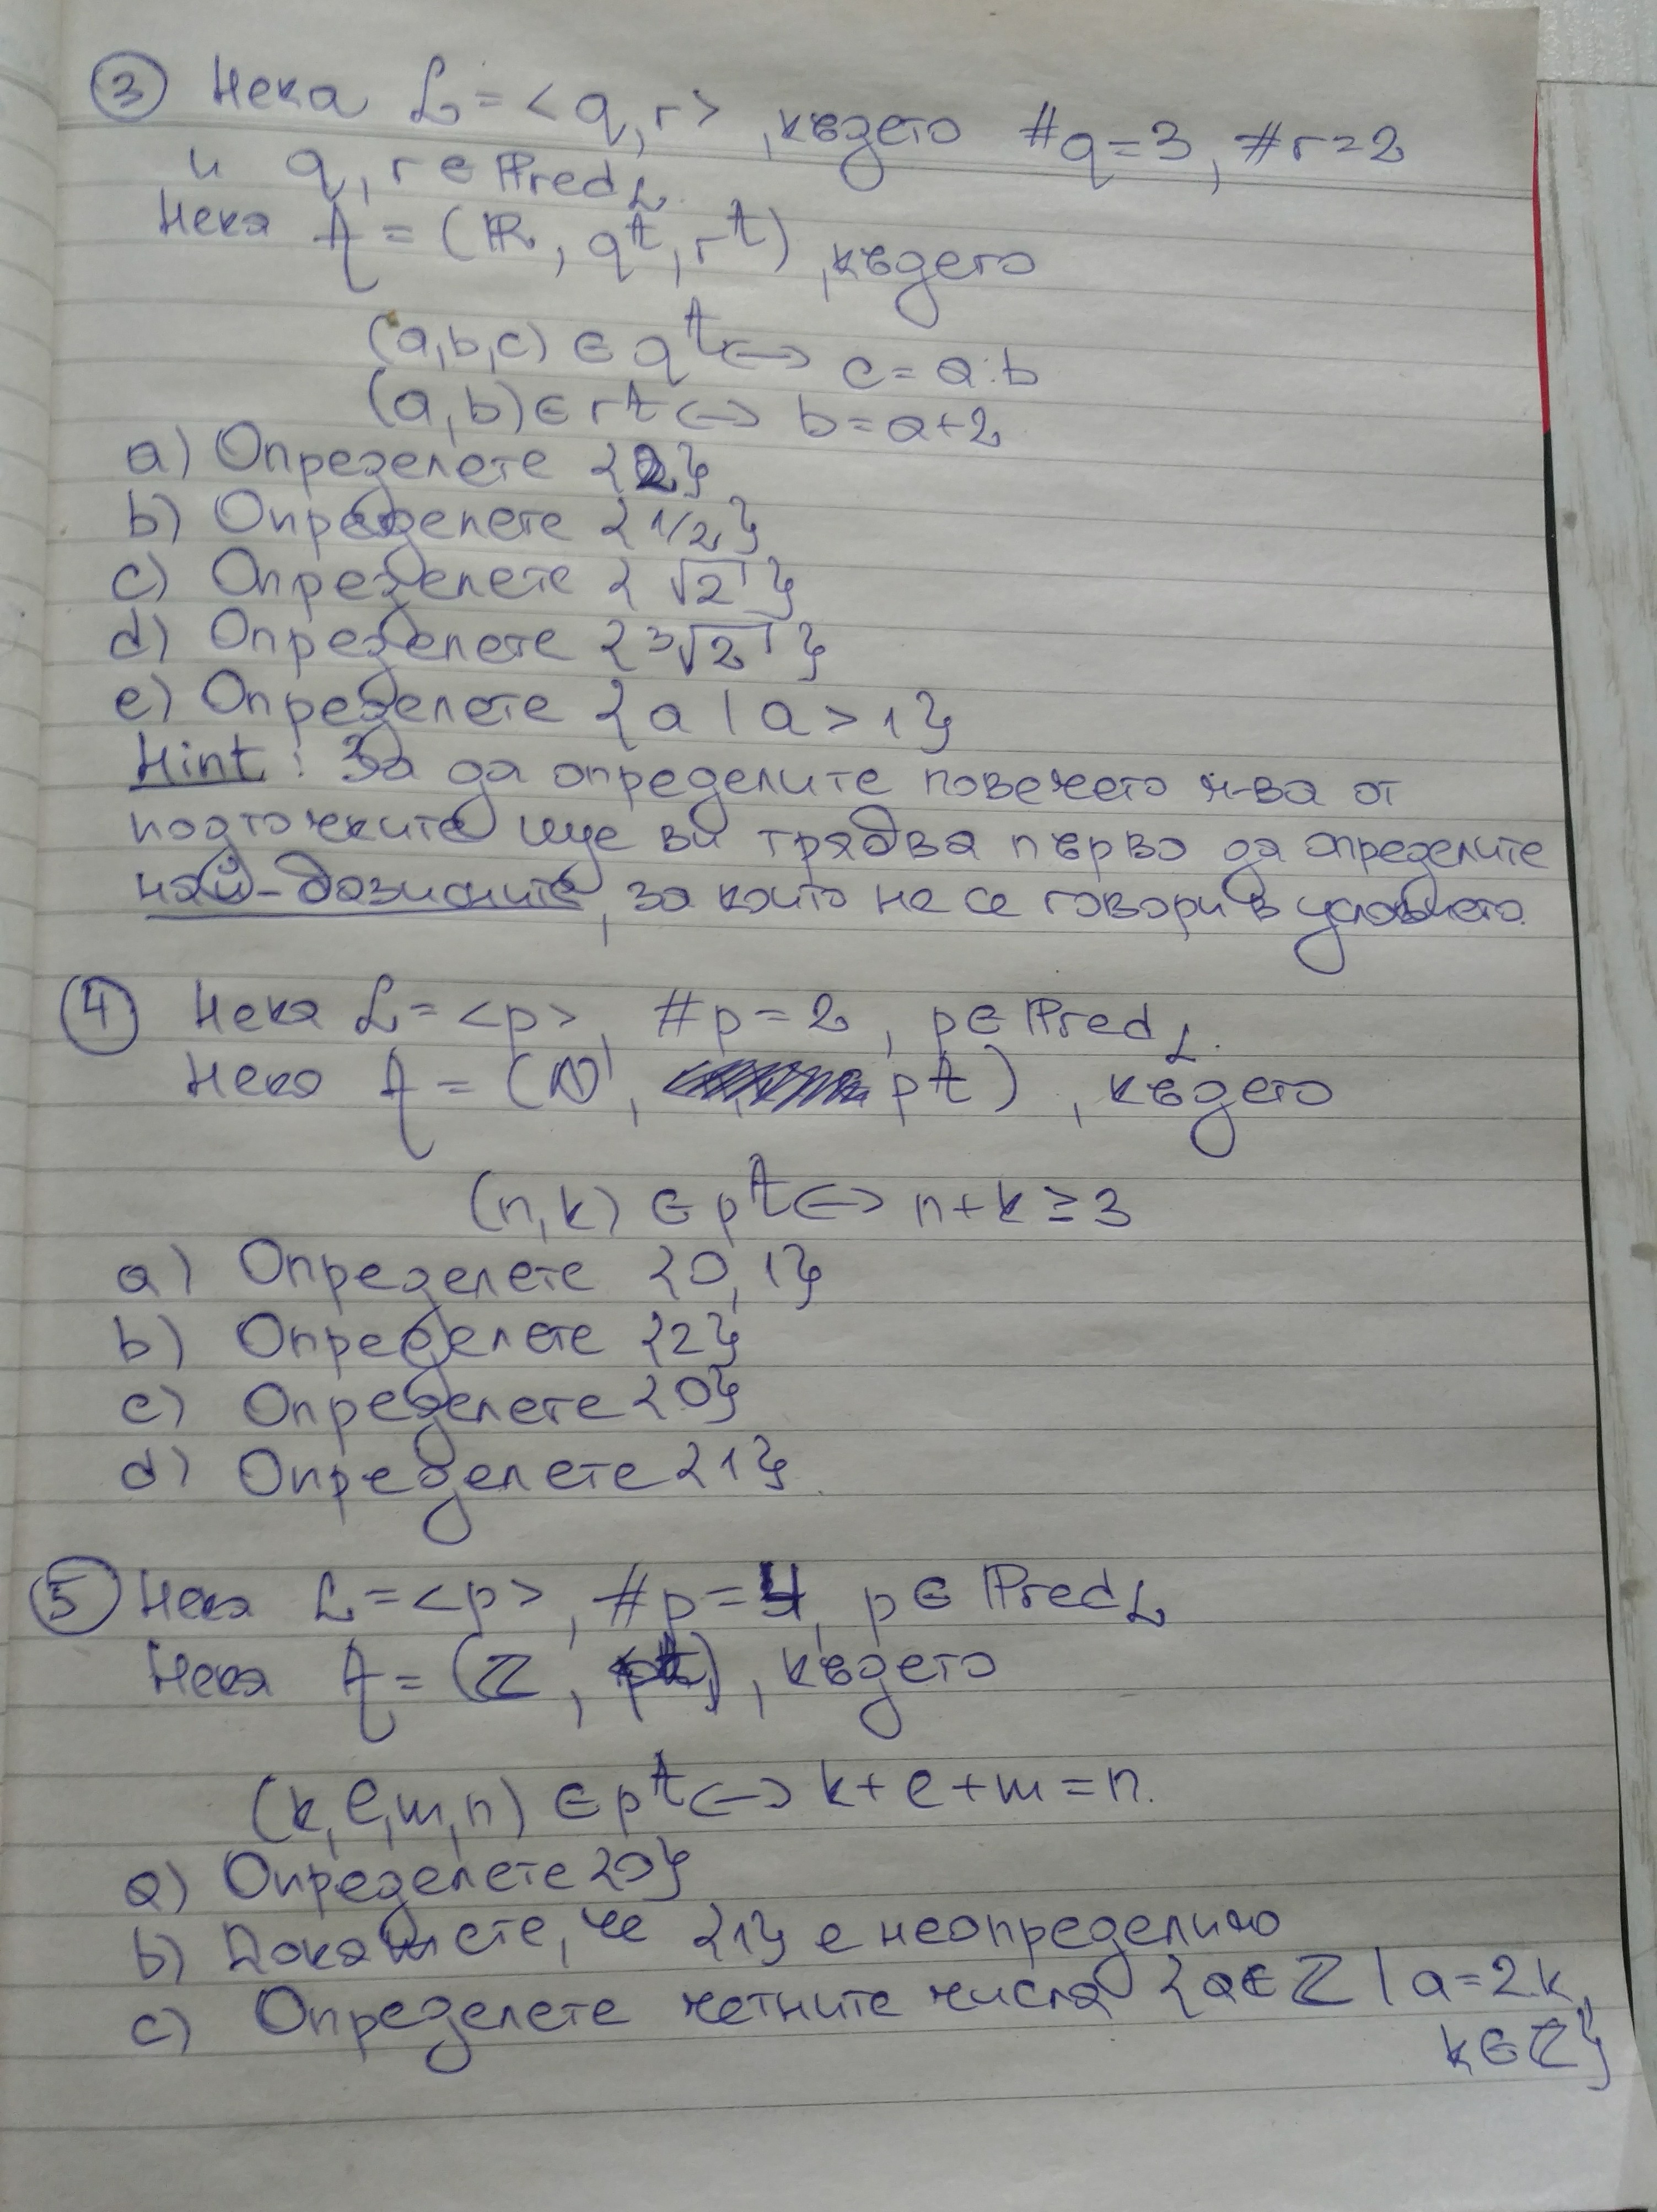 ③ Нека L = <q, r>, където #q=3, #r=2
и q, r ∈ Pred_L.
Нека A = (ℝ, q^A, r^A), където
(a,b,c) ∈ q^A <-> c = a.b
(a,b) ∈ r^A <-> b = a+2
a) Определете {2}
b) Определете {1/2}
c) Определете {√2}
d) Определете {³√2}
e) Определете {a | a > 1}
Hint: За да определите повечето м-ва от
подточките ще ви трябва първо да определите
най-базисните, за които не се говори в условието.
④ Нека L = <p>, #p = 2, p ∈ Pred_L.
Нека A = (ℕ, p^A), където
(n,k) ∈ p^A <-> n+k ≥ 3
a) Определете {0, 1}
b) Определете {2}
c) Определете {0}
d) Определете {1}.
⑤ Нека L = <p>, #p = 4, p ∈ Pred_L
Нека A = (ℤ, p^A), където
(k, l, m, n) ∈ p^A <-> k + l + m = n.
a) Определете {0}
b) Докажете, че {1} е неопределимо
c) Определете четните числа {a ∈ ℤ | a = 2.k,
k ∈ ℤ}